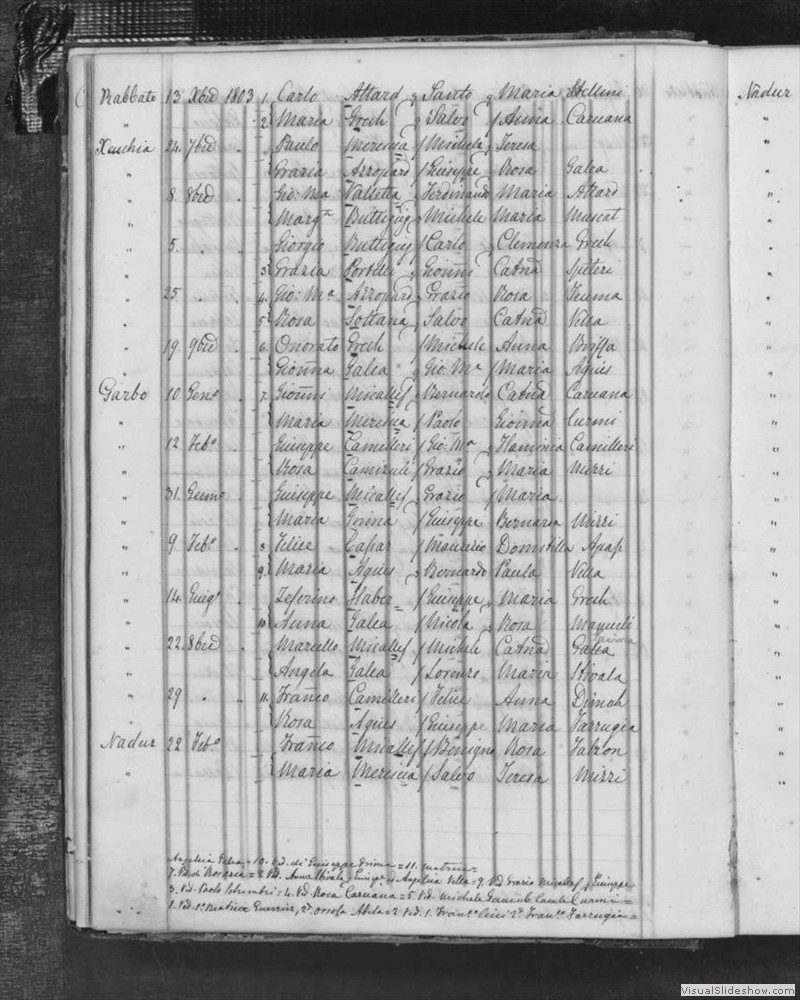 Rabbato 13 Xbre 1803 1. Carlo Attard Santo Maria Stellini Nadur
" 2 Maria Grech Salvo Anna Caruana
Xeuchia 24. 7bre Paulo Mercieca Michele Teresa
" Grazia Azzopard Giuseppe Rosa Galea
" 8. 8bre Gio: Ma Valletta Ferdinando Maria Attard
" Margta Buttigieg Michele Maria Muscat
" 5. Giorgio Buttigieg Carlo Clemenza Grech
" 3 Grazia Portelli Gionni Catna Spiteri
" 25. 4. Gio: Ma Azzopard Grazio Rosa
" 5 Rosa Sultana Salvo Catna Vella
" 19. 9bre 6. Onorato Grech Michele Anna Briffa
" Gionna Galea Gio: Ma Maria Agius
Garbo 10 Geno 7. Gionni Micallef Bernardo Catna Caruana
" Maria Mercieca Paolo Gionna Curmi
" 12 Febo Giuseppe Camilleri Gio: Ma Flaminia Camilleri
" Rosa Grazio Maria Mizzi
" 31. Genno Giuseppe Micallef Grazio Maria
" Maria Grima Giuseppe Bernarda Mizzi
" 9. Febo 8. Felice Maurizio Domitilla Apap
" 9. Maria Agius Bernardo Paula Vella
" 14. Giugo Zeferino Haber Giuseppe Maria Grech
" 10 Anna Galea Nicola Rosa
" 22. 8bre Marcello Micallef Michele Catna Galea
" Angela Galea Lorenzo Maria Stivala
" 29 11. Franco Camilleri Felice Anna Dimech
" Rosa Agius Giuseppe Maria Farrugia
Nadur 22 Febo Franco Micallef Benigno Rosa
" Maria Mercieca Salvo Teresa Mizzi
10. Vd. di Giuseppe Grima = 11.
7. Vd. di Rosaria = 8. Vd. Anna Stivala, Angelica Vella = 9. Vd. Grazia Micallef, Giuseppe
3. Vd. Paolo = 4. Vd. Rosa Caruana = 5. Vd. Michele Curmi =
1. Vd. Beatrice 2. Orsola Abela = 2 Vd. 1. Franco 2. Franca Farrugia =
VisualSlideshow.com